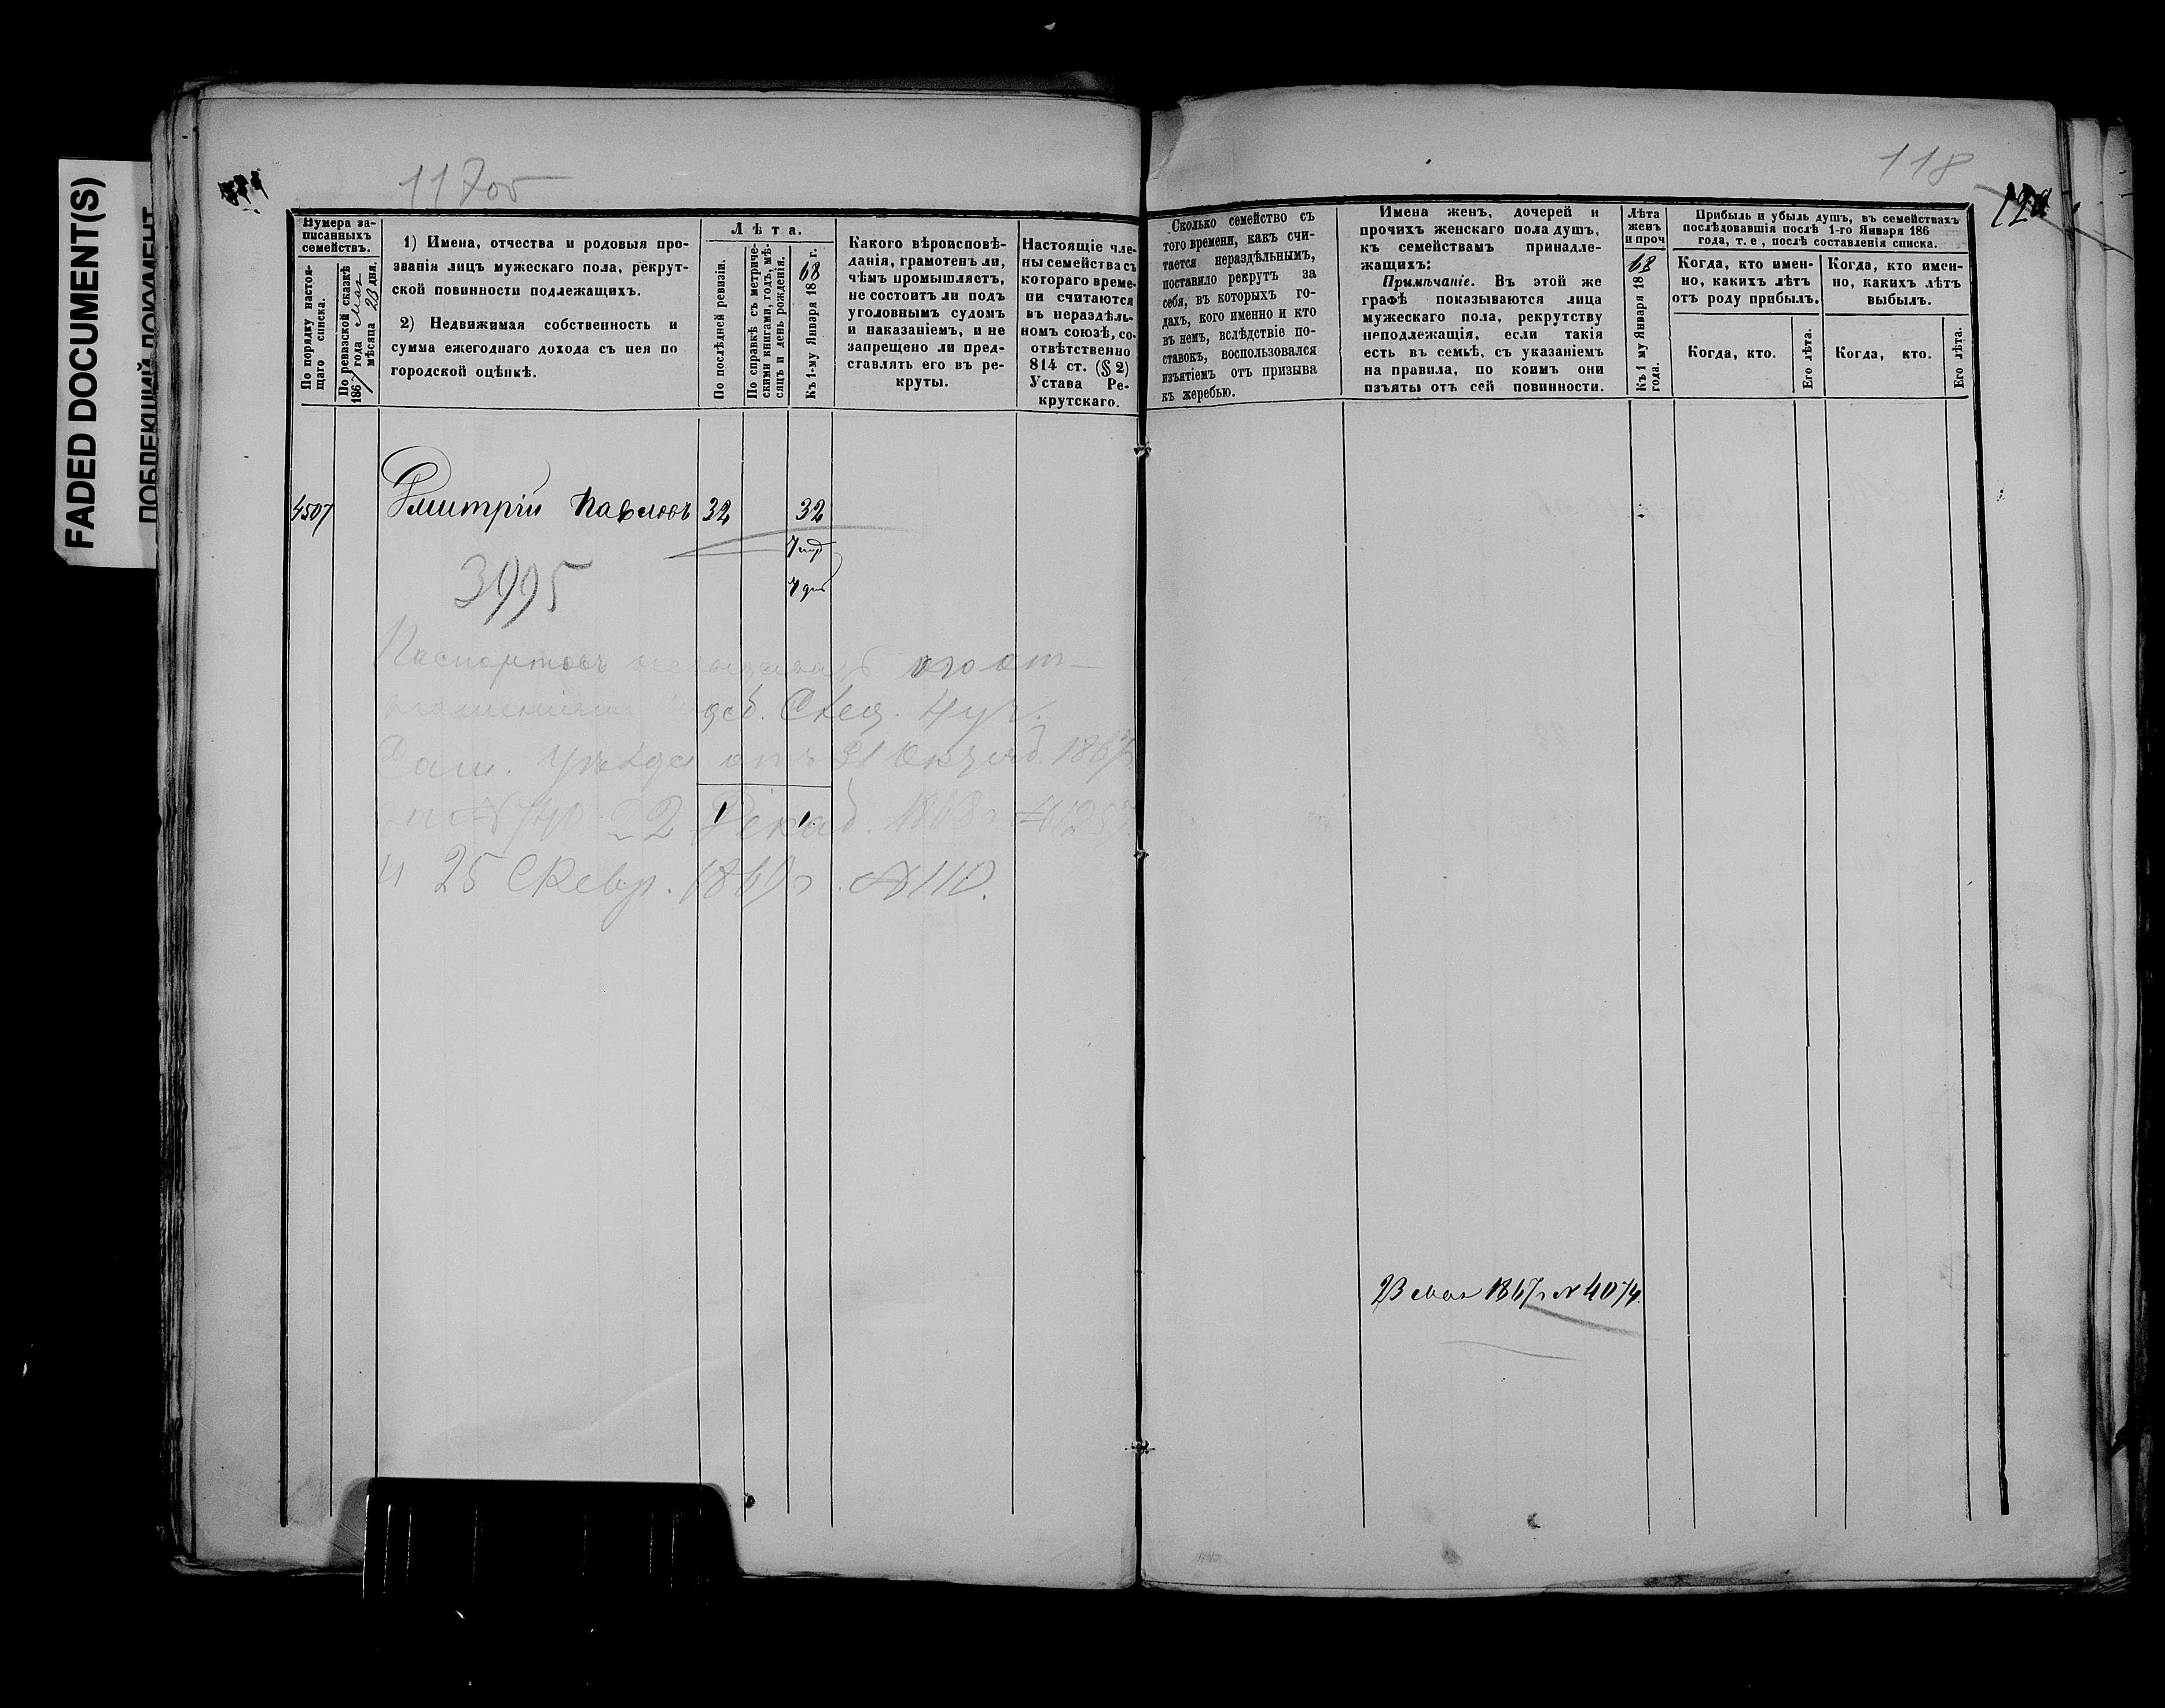 FADED DOCUMENT(S)
117об
118
Нумера за-
писанныхъ
семействъ.
По порядку настоя-
щаго списка.
По ревизской сказкѣ
1867 года Мая
мѣсяца 23 дня.
1) Имена, отчества и родовыя про-
званія лицъ мужескаго пола, рекрут-
ской повинности подлежащихъ.
2) Недвижимая собственность и
сумма ежегоднаго дохода съ нея по
городской оцѣнкѣ.
Лѣта.
По послѣдней ревизіи.
По справкѣ съ метриче-
скими книгами, годъ, мѣ-
сяцъ и день рожденія.
Къ 1-му Января 1868 г.
Какого вѣроисповѣ-
данія, грамотенъ ли,
чѣмъ промышляетъ,
не состоитъ ли подъ
уголовнымъ судомъ
и наказаніемъ, и не
запрещено ли пред-
ставлять его въ ре-
круты.
Настоящіе чле-
ны семейства съ
котораго време-
ни считаются
въ нераздѣль-
номъ союзѣ, со-
отвѣтственно
814 ст. (§ 2)
Устава Ре-
крутскаго.
Сколько семейство съ
того времени, какъ счи-
тается нераздѣльнымъ,
поставило рекрутъ за
себя, въ которыхъ го-
дахъ, кого именно и кто
въ немъ, вслѣдствіе по-
ставокъ, воспользовался
изъятіемъ отъ призыва
къ жеребью.
Имена женъ, дочерей и
прочихъ женскаго пола душъ,
къ семействамъ принадле-
жащихъ:
Примѣчаніе. Въ этой же
графѣ показываются лица
мужескаго пола, рекрутству
неподлежащія, если такія
есть въ семьѣ, съ указаніемъ
на правила, по коимъ они
изъяты отъ сей повинности.
Лѣта
женъ
и проч
Къ 1 му Января 1868
года.
Прибыль и убыль душъ, въ семействахъ
послѣдовавшія послѣ 1-го Января 186
года, т. е., послѣ составленія списка.
Когда, кто имен-
но, какихъ лѣтъ
отъ роду прибылъ.
Когда, кто имен-
но, какихъ лѣтъ
выбылъ.
Когда, кто.
Его лѣта.
Когда, кто.
Его лѣта.
4507 Дмитрій Павловъ 32 32
3995
Паспортовъ
31 1867
22 Декаб. 1868
1 1
и 25 Февр. 1869 г. № 110.
23 Мая 1867 г № 4074.